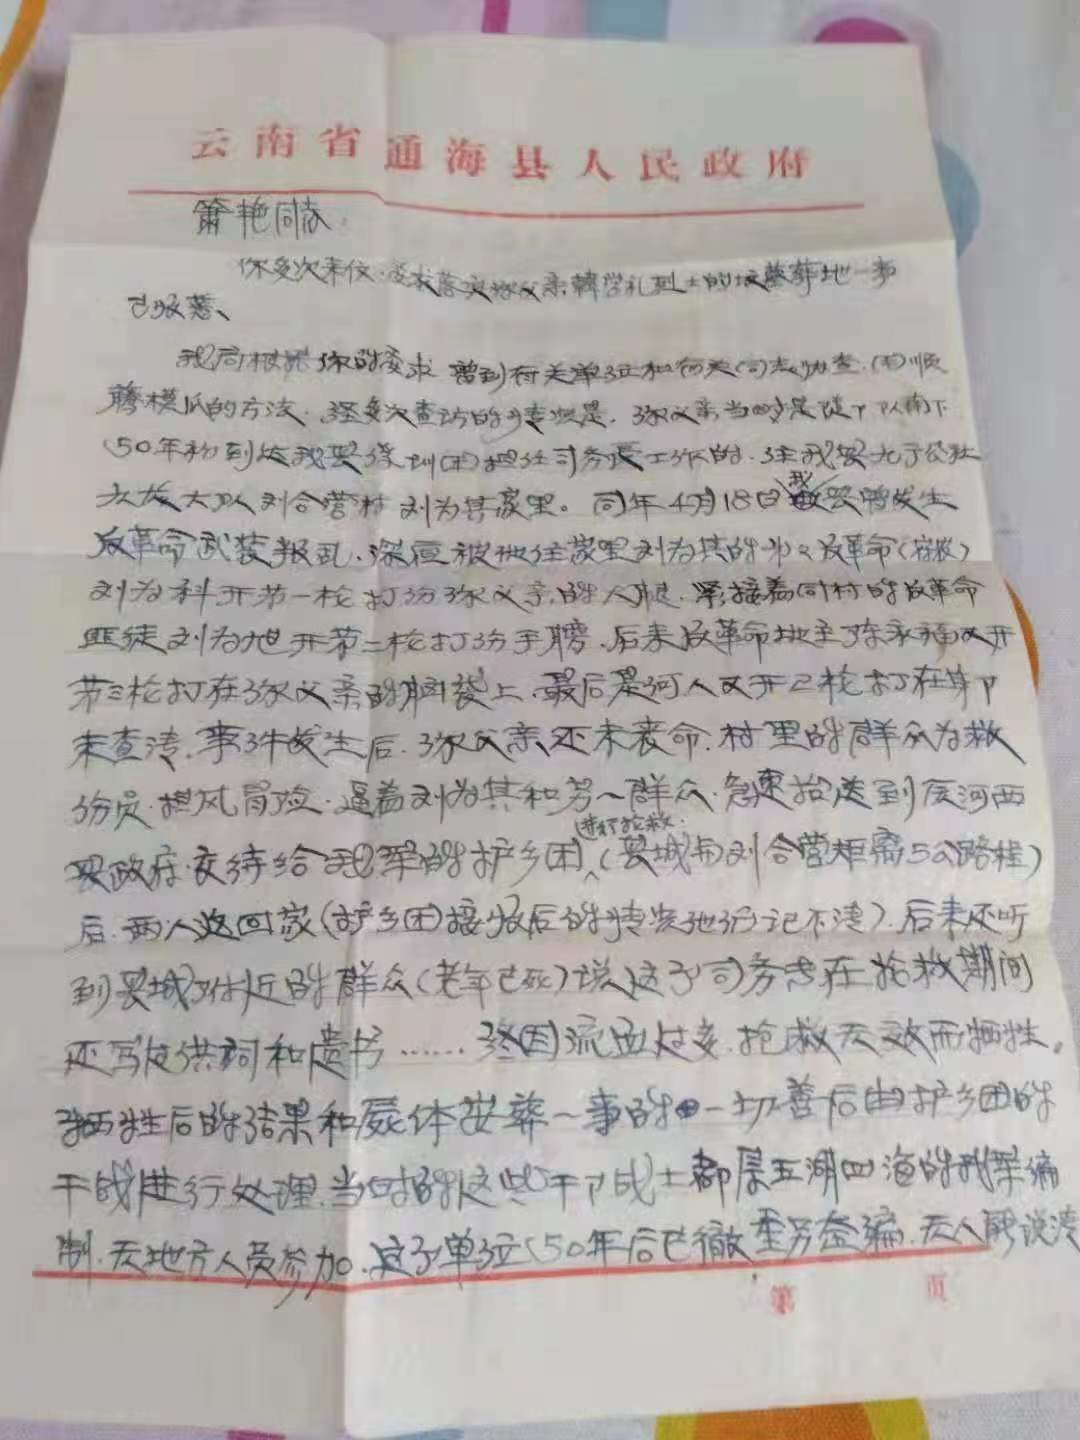 云南省通海县人民政府
艳同志:
你多次来信,要求落实你父亲韩学礼烈士的坟墓葬地一事
已收悉、
我局根据你的要求 曾到有关单位和有关同志处查,用顺
藤摸瓜的方法,经多次查访的情况是,你父亲当时是随部队南下
50年初到达我县集训团担任司务长工作的,住我县九子公社
大龙大队刘合营村刘为其家里。同年4月18日我县暴发生
反革命武装叛乱,深夜被他住家里刘为其的 反革命
刘为科开第一枪打伤你父亲的人腿,紧接着同村的反革命
匪徒刘为旭开第二枪打伤手臂,后来反革命地主陈永福又开
第三枪打在你父亲的脑袋上,最后是何人又开已枪打在
未查清,事件发生后,你父亲还未丧命,村里的群众为救
伤员,担风冒险,逼着刘为其和另一群众,急速抬送到原河西
县政府,交待给我军的护乡团进行抢救(县城与刘合营距离5公路程)
后,两人返回家(护乡团接收后的情况他们记不清),后来还听
到县城附近的群众(老年已死)说这个司务长在抢救期间
还写 供词和遗书……终因流血过多,抢救无效而牺牲。
牺牲后的结果和尸体安葬一事的一切善后由护乡团的
干战进行处理,当时的这些干部战士都属五湖四海的我军编
制,无地方人员参加,这个单位50年后已撤 重另整编,无人能说清
第 页